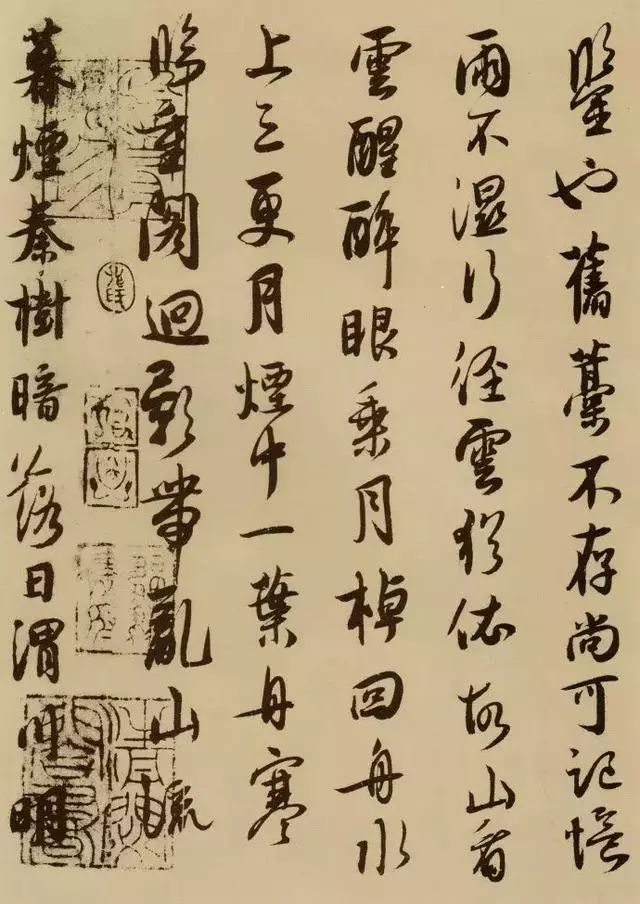 鑒也舊藁不存尚可記憶
雨不濕行徑雲猶依故山看
雲醒醉眼乘月棹回舟水
上三更月煙中一葉舟寒
閣迥影帶亂山
暮煙秦樹暗落日渭川明